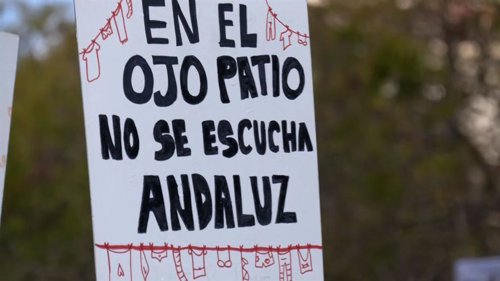 EN EL
OJO PATIO
NO SE ESCUCHA
ANDALUZ